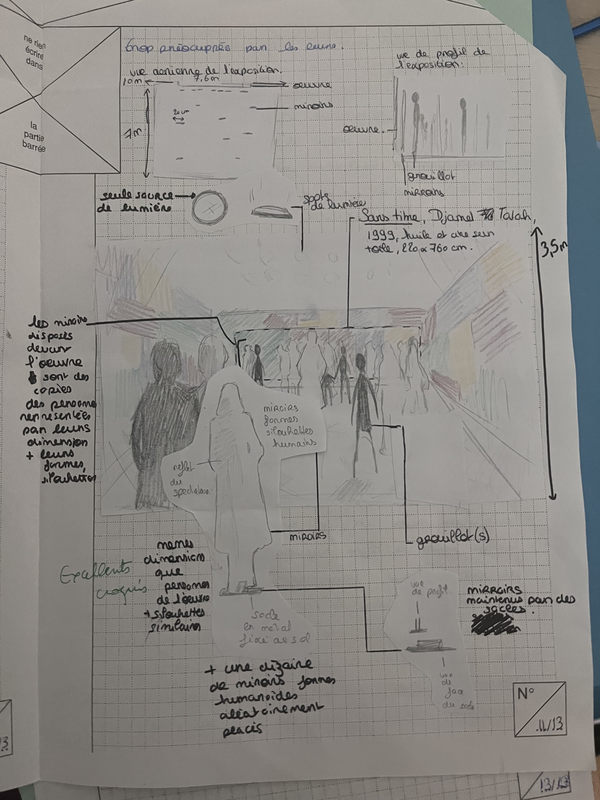 ne rien
écrire
dans
la
partie
barrée
trop préoccupés par les leurs.
vue aérienne de l'exposition.
10m
7,6m
œuvre
miroirs
20cm
7m
vue de profil de
l'exposition:
œuvre
grouillot
miroirs
seule source
de lumière
spots
de lumière
Sans titre, Djamel Tatah,
1999, huile et cire sur
toile, 220 x 760 cm.
3,5m
les miroirs
disposés
devant
l'œuvre
sont des
copies
des personnes
représentées
par leurs
dimension
+ leurs
formes,
silouhettes
miroirs
formes
silouhettes
humains
reflet
du
spectateur
miroirs
grouillot(s)
Excellents
croquis
memes
dimensions
que
personnes
de l'œuvre
+ silouhettes
similaires
socle
en métal
fixé au sol
vue
de profil
MIRROIRS
maintenus par des
socles
vue
de
face
du socle
+ une dizaine
de miroirs formes
humanoïdes
aléatoirement
placés
N°
11/13
13/13